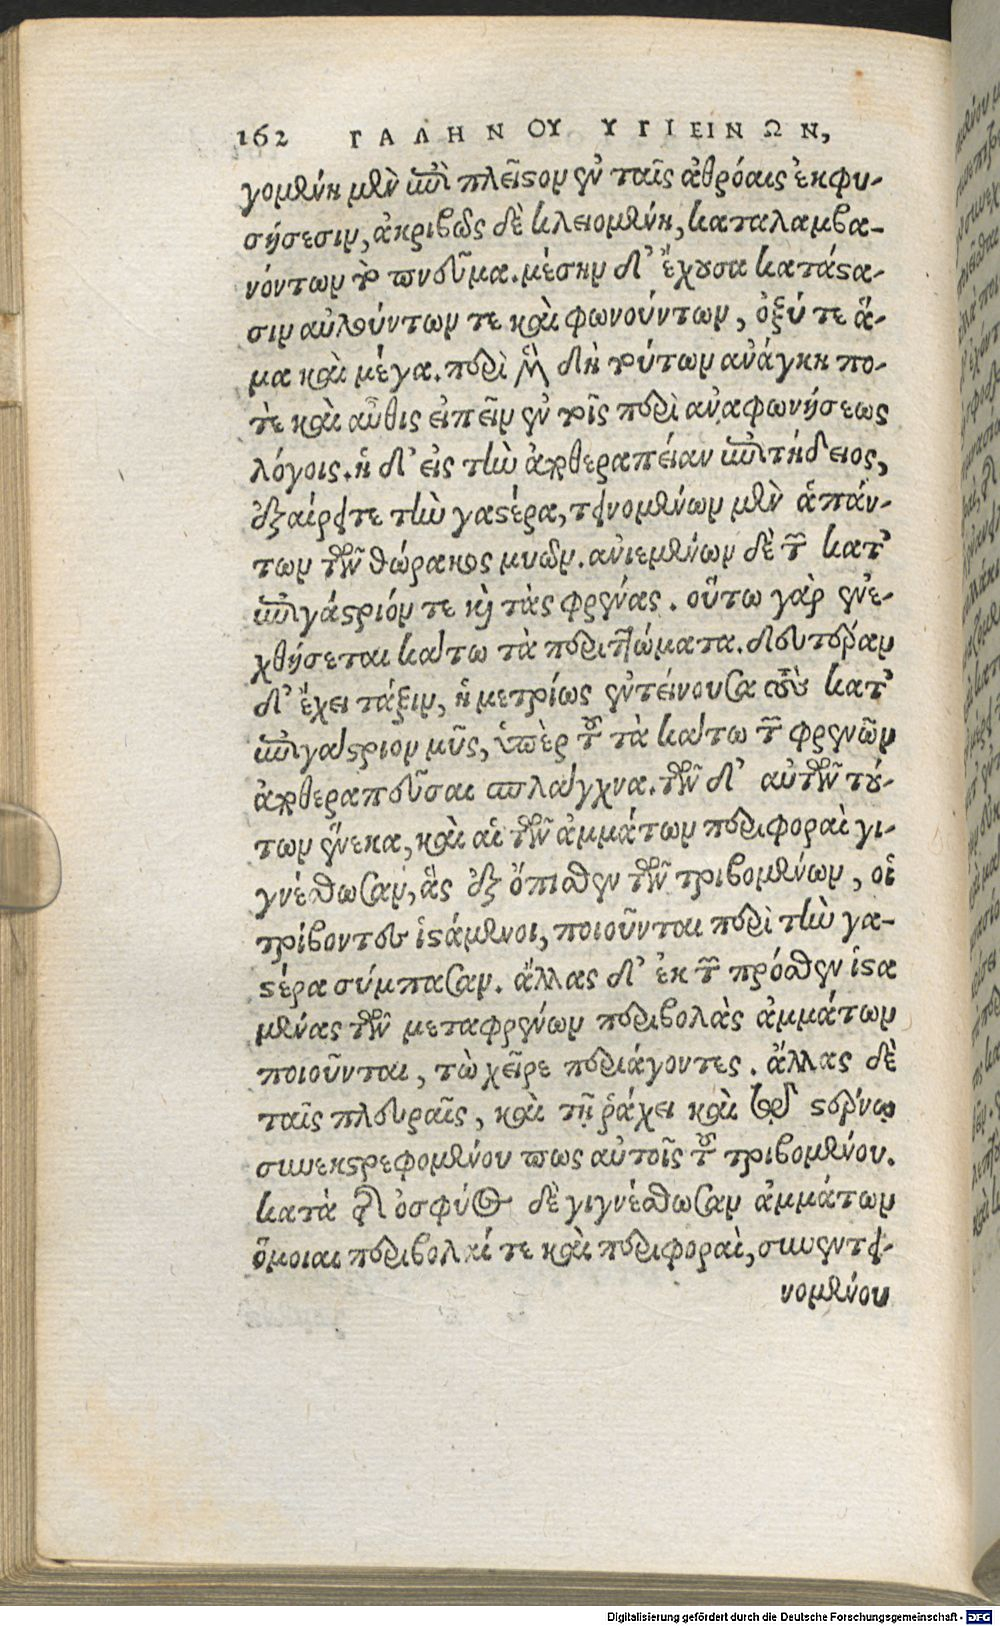 162 ΓΑΛΗΝΟΥ ΥΓΙΕΙΝΩΝ,
γομένη μὲν ἐπὶ πλεῖστον ἐν ταῖς ἀθρόαις ἐκφυ-
σήσεσιν, ἀκριβῶς δὲ κλειομένη, καταλαμβα-
νόντων τὸ πνεῦμα. μέσην δ’ ἔχουσα κατάστα-
σιν αὐλούντων τε καὶ φωνούντων, ὀξύ τε ἅ-
μα καὶ μέγα. περὶ μὲν δὴ τούτων ἀνάγκη πο-
τὲ καὶ αὖθις εἰπεῖν ἐν τοῖς περὶ ἀναφωνήσεως
λόγοις. ἡ δ’ εἰς τὴν ἀποθεραπείαν ἐπιτήδειος,
ἐξαίρει τε τὴν γαστέρα, τεινομένων μὲν ἁπάν-
των τῶν θώρακος μυῶν. ἀνιεμένων δὲ τῶν κατ’
ἐπιγάστριόν τε καὶ τὰς φρένας. οὕτω γὰρ ἐνε-
χθήσεται κάτω τὰ περιττώματα. δευτέραν
δ’ ἔχει τάξιν, ἡ μετρίως ἐντείνουσα τοὺς κατ’
ἐπιγάστριον μῦς, ὑπὲρ τοῦ τὰ κάτω τῶν φρενῶν
ἀποθεραπεῦσαι σπλάγχνα. τῶν δ’ αὐτῶν τού-
των ἕνεκα, καὶ αἱ τῶν ἁμμάτων περιφοραὶ γι-
γνέσθωσαν, ἃς ἐξ ὄπισθεν τῶν τριβομένων, οἱ
τρίβοντες ἱστάμενοι, ποιοῦνται περὶ τὴν γα-
στέρα σύμπασαν. ἄλλας δ’ ἐκ τῶν πρόσθεν ἱστα
μένας τῶν μεταφρένων περιβολὰς ἁμμάτων
ποιοῦνται, τὼ χεῖρε περιάγοντες. ἄλλας δὲ
ταῖς πλευραῖς, καὶ τῇ ῥάχει καὶ τῷ στέρνῳ
συνεκστρεφομένου πως αὐτοῖς τοῦ τριβομένου.
κατὰ τῆς ὀσφύος δὲ γιγνέσθωσαν ἁμμάτων
ὅμοιαι περιβολαί τε καὶ περιφοραὶ, συνεντει-
νομένου
Digitalisierung gefördert durch die Deutsche Forschungsgemeinschaft - DFG